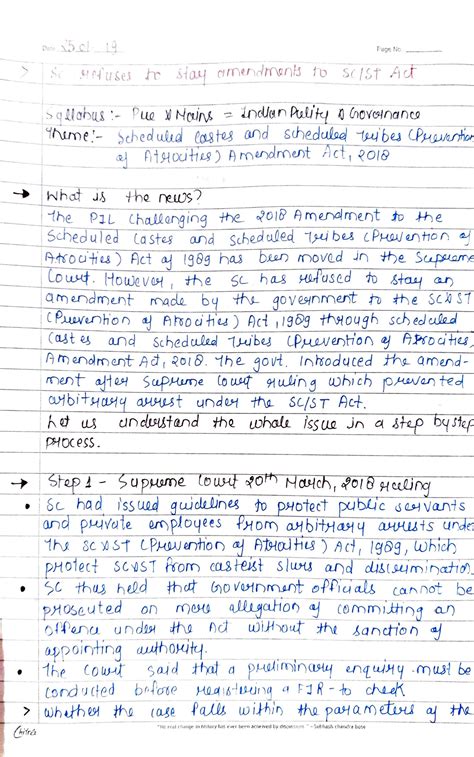 Date 25.01.19 Page No.
> SC refuses to stay amendments to SC/ST Act
Syllabus :- Pre & Mains = Indian Polity & Governance
Theme :- Scheduled Castes and Scheduled Tribes (Prevention
of Atrocities) Amendment Act, 2018
→ What is the news?
The PIL challenging the 2018 Amendment to the
Scheduled Castes and Scheduled Tribes (Prevention of
Atrocities) Act of 1989 has been moved in the Supreme
Court. However, the SC has refused to stay an
amendment made by the government to the SC&ST
(Prevention of Atrocities) Act, 1989 through scheduled
Castes and Scheduled Tribes (Prevention of Atrocities)
Amendment Act, 2018. The govt. introduced the amend-
ment after Supreme Court ruling which prevented
arbitrary arrest under the SC/ST Act.
Let us understand the whole issue in a step by step
process.
→ Step 1 - Supreme Court 20th March, 2018 ruling
• SC had issued guidelines to protect public servants
and private employees from arbitrary arrests under
The SC&ST (Prevention of Atrocities) Act, 1989, which
protect SC&ST from casteist slurs and discrimination.
• SC thus held that Government officials cannot be
proscuted on mere allegation of committing an
offence under the Act without the sanction of
appointing authority.
• The Court said that a preliminary enquiry must be
conducted before registering a FIR - to check
> whether the case falls within the parameters of the
"No real change in history has ever been achieved by discussions." - Subhash chandra bose